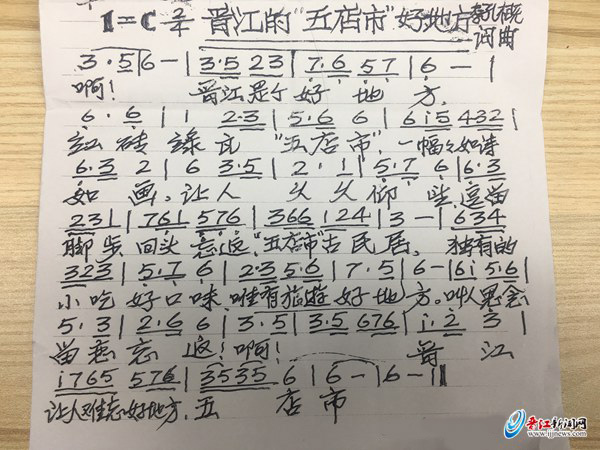 1=C 2/4 晋江的"五店市"好地方 李孔概 词曲
3·5|6-|3·5 23|7·6 57|6-|
啊! 晋江是个好地方,
6·6|1 2·3|5·6 6|6i5 432|
红砖绿瓦"五店市",一幅幅如诗
6·3 2|6 3·5|2·1|5·7 6|6·3
如画。让人久久仰望,逗留
231|761 576|366 124|3-|634
脚步回头意返,"五店市"古民居,独有的
323|5·7 6|2·3 5·6|7·5|6-|6i 5·6|
小吃好口味唯有旅游好地方。叫人思念
5·3|2·6 6|3·5|3·5 676|i·2 3|
留恋忘返!啊! 晋江
i765 576|3535 6|6-|6-‖
让人难忘好地方,五店市
晋江新闻网
www.ijjnews.com